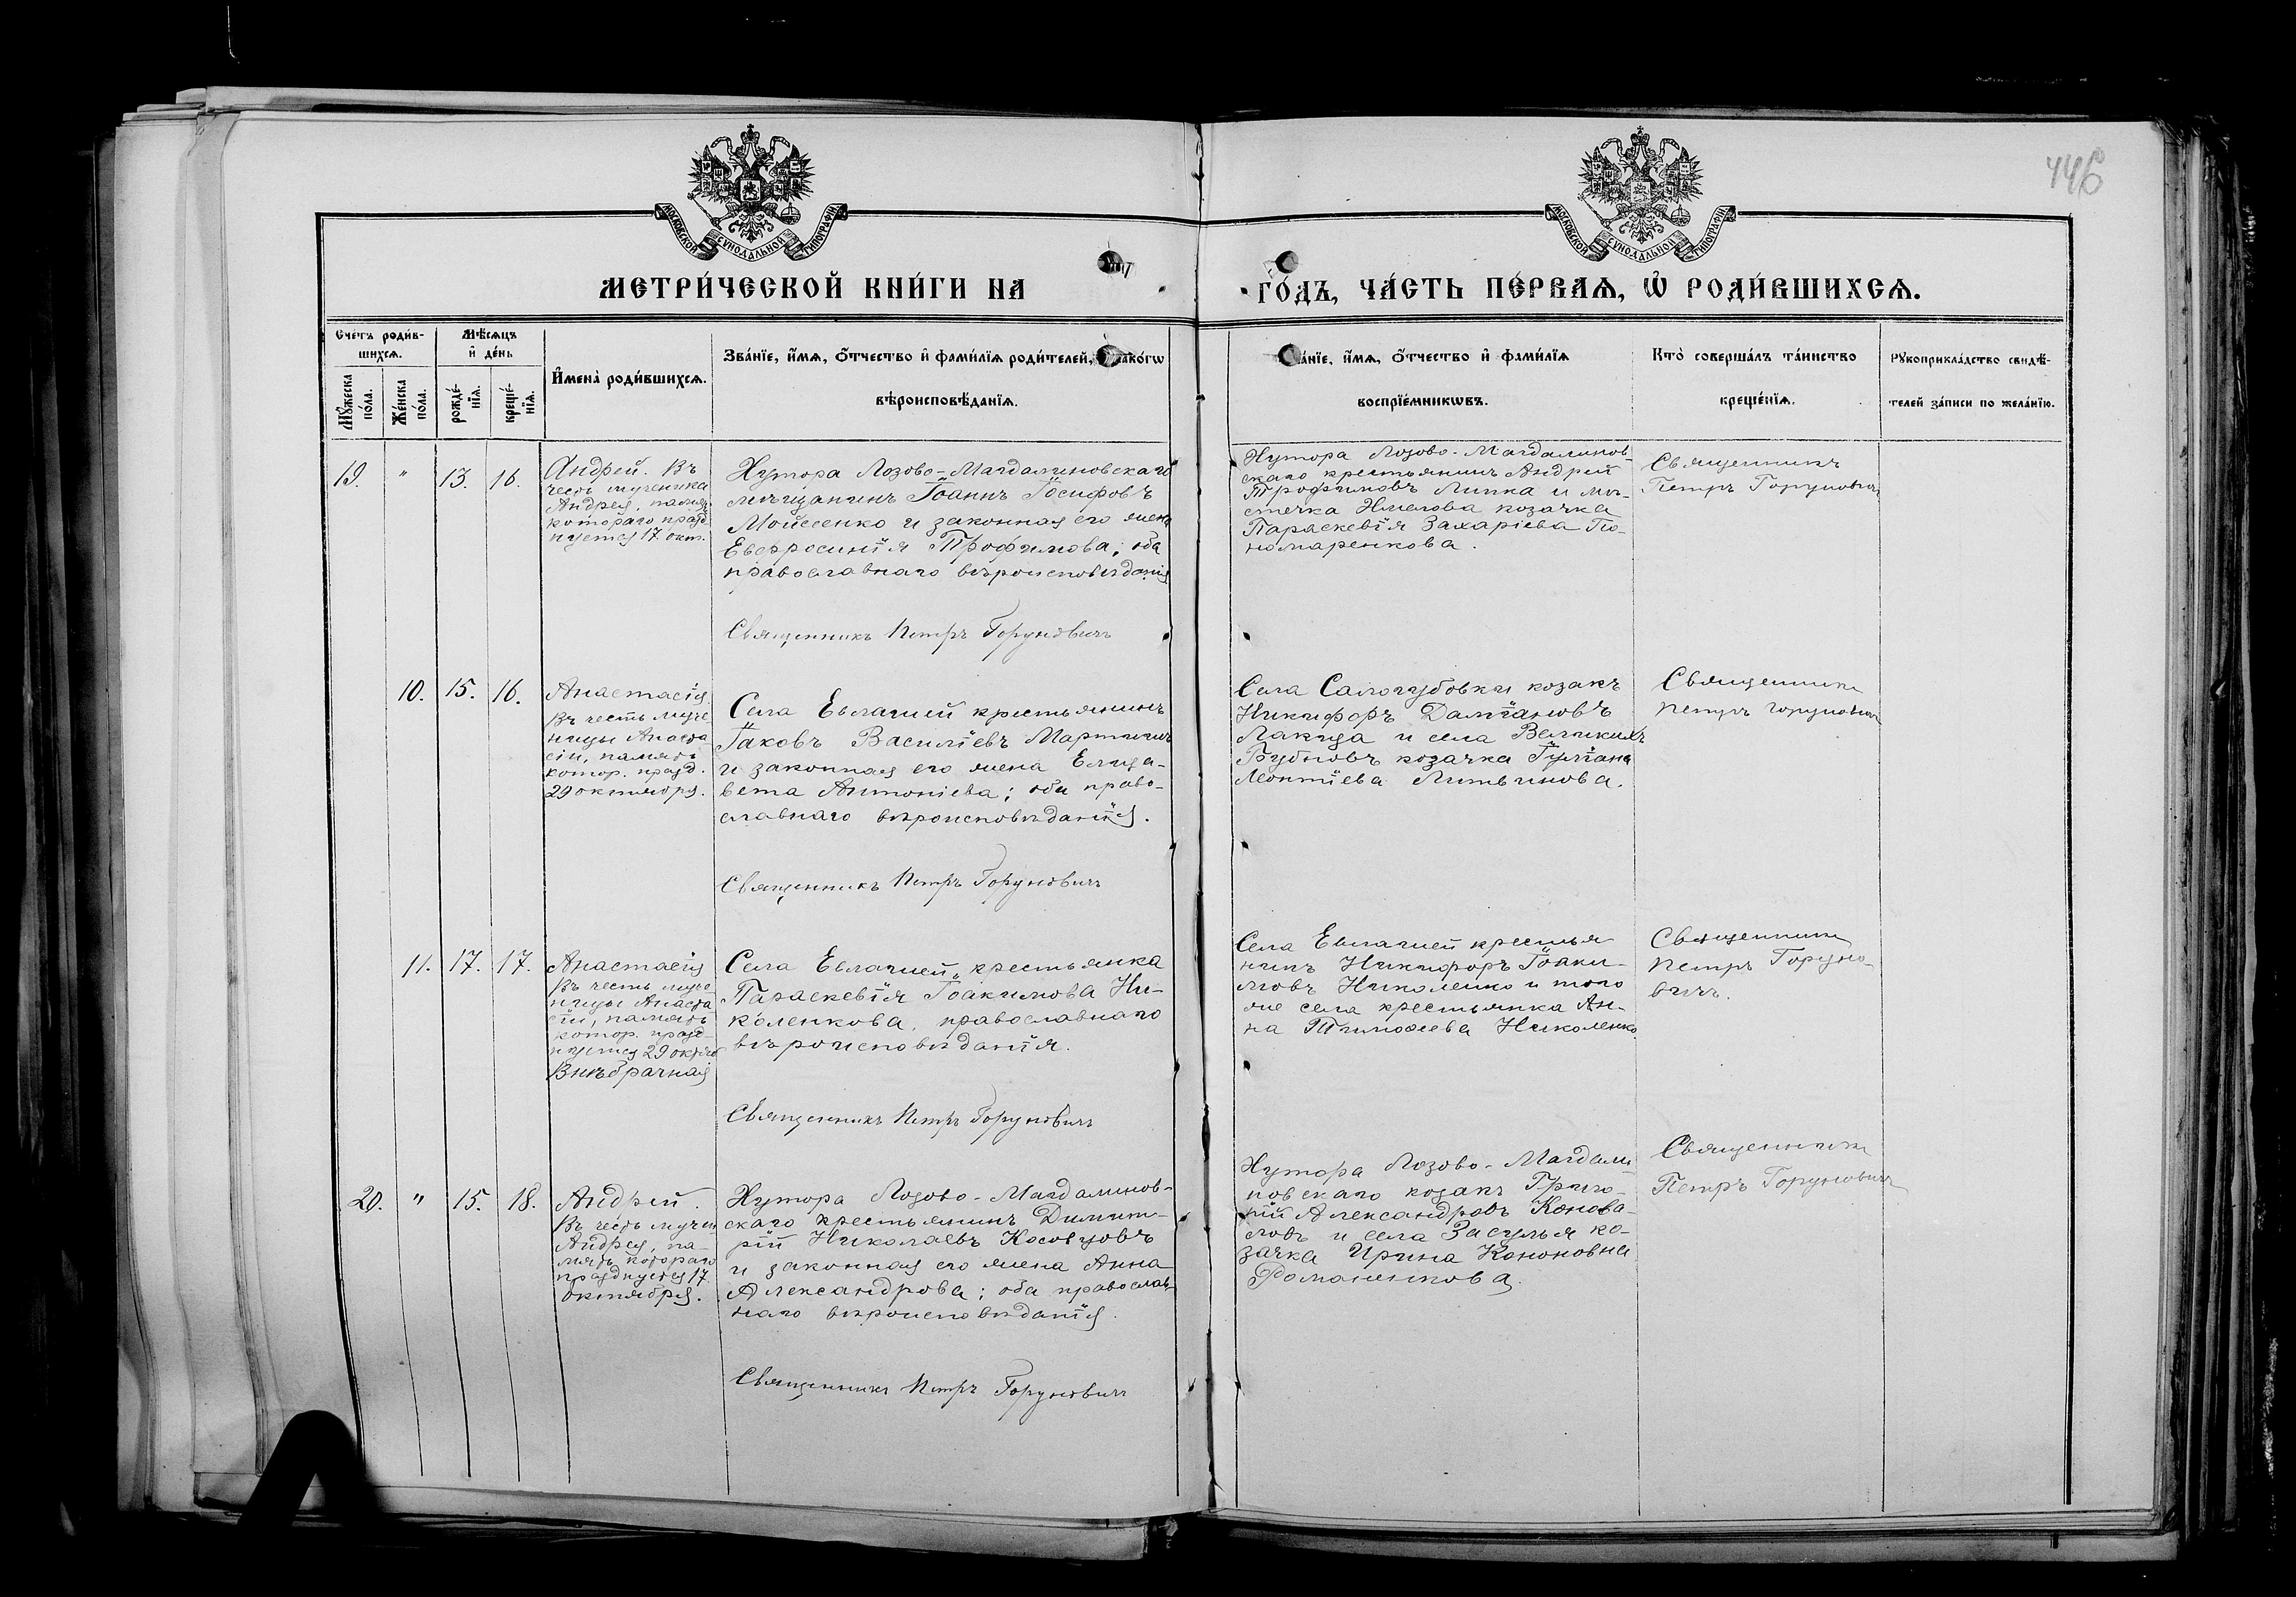 446
МОСКОВСКОЙ СѴНОДАЛЬНОЙ ТИПОГРАФІИ
МОСКОВСКОЙ СѴНОДАЛЬНОЙ ТИПОГРАФІИ
МЕТРИ́ЧЕСКОЙ КНИ́ГИ НА
ГО́ДЪ, ЧА́СТЬ ПЕ́РВАѦ, Ѽ РОДИ́ВШИХСѦ.
Сче́тъ роди́в-
шихсѧ.
Мѣ́сѧцъ
и҆ де́нь
И҆мена̀ роди́вшихсѧ.
Зва́нїе, и҆́мѧ, ѻ҆́тчество и҆ фами́лїѧ роди́телей, и҆ како́гѡ
вѣроисповѣ́данїѧ.
Мꙋ́жеска
по́ла.
Же́нска
по́ла.
рожде́-
нїѧ.
креще́-
нїѧ.
Зва́нїе, и҆́мѧ, ѻ҆́тчество и҆ фами́лїѧ
воспрїе́мникѡвъ.
Кто̀ соверша́лъ та́инство
креще́нїѧ.
Рꙋкоприкла́дство свидѣ́-
телей за́писи по жела́нїю.
19. " 13. 16.
Андрей. Въ
честь мученика
Андрея, память
котораго празд
нуется 17 окт.
Хутора Лозово-Магдалиновскаго
мѣщанинъ Іоаннъ Іосифовъ
Мойсеенко и законная его жена
Евфросинія Трофимова; оба
православнаго вѣроисповѣданія
Священникъ Петръ Горуновичъ
Хутора Лозово-Магдалинов-
скаго крестьянинъ Андрей
Трофимовъ Липка и мѣ-
стечка Смелова козачка
Параскевія Захаріева По-
номаренкова.
Священникъ
Петръ Горуновичъ
10. 15. 16.
Анастасія
Въ честь муче
ницы Анаста
сіи, память
котор. празд.
29 октября.
Села Евлашей крестьянинъ
Іаковъ Василіевъ Мартынъ
и законная его жена Елиза-
вета Антоніева; оба право-
славнаго вѣроисповѣданія.
Священникъ Петръ Горуновичъ
Села Самогубовки козакъ
Никифоръ Даміановъ
Лакиза и села Великихъ
Бубновъ козачка Іуліана
Леонтіева Литвинова.
Священникъ
Петръ Горуновичъ
11. 17. 17.
Анастасія
Въ честь муче-
ницы Анаста
сіи, память
котор. празд-
нуется 29 октяб
Внѣбрачная
Села Евлашей, крестьянка
Параскевія Іоакимова Ни-
коленкова, православнаго
вѣроисповѣданія.
Священникъ Петръ Горуновичъ
Села Евлашей крестья
нинъ Никифоръ Іоаки-
мовъ Николенко и того
же села крестьянка Ан-
на Тимоѳеева Николенко
Священникъ
Петръ Горуно-
вичъ.
20. " 15. 18.
Андрей.
Въ честь мучен
Андрея, па-
мять котораго
празднуется 17
октября.
Хутора Лозово-Магдалинов-
скаго крестьянинъ Димит-
рій Николаевъ Косовцовъ
и законная его жена Анна
Александрова; оба православ-
наго вѣроисповѣданія.
Священникъ Петръ Горуновичъ
Хутора Лозово-Магдали-
новскаго козакъ Григо-
рій Александровъ Конова-
ловъ и села Засулья ко-
зачка Ирина Кононовна
Романенкова.
Священникъ
Петръ Горуновичъ